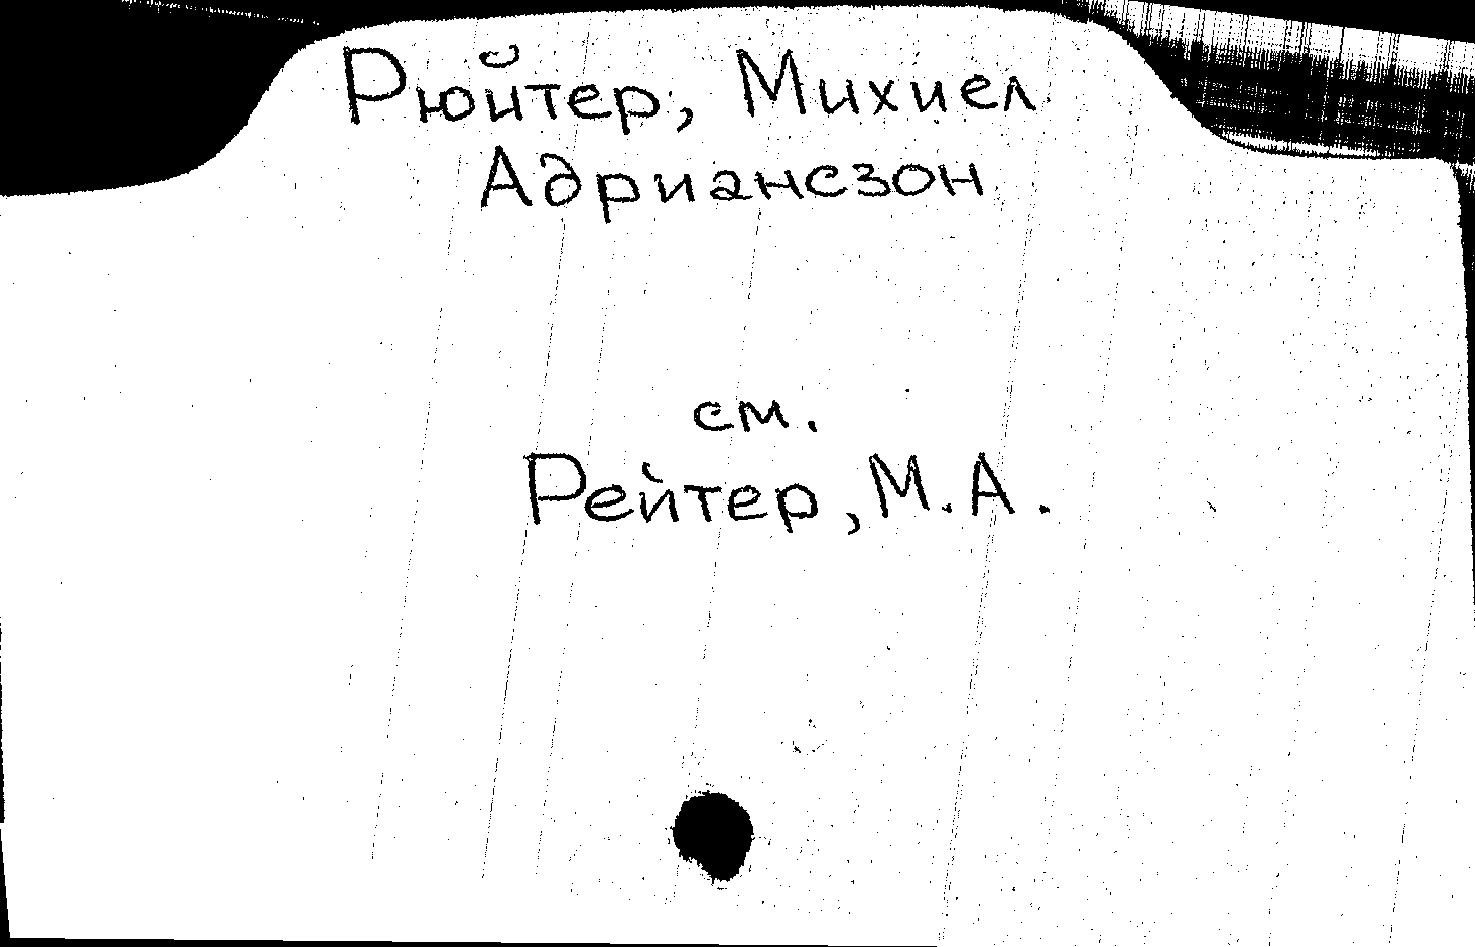 Рюйтер, Михиел
Адриансзон
см.
Рейтер, М. А.